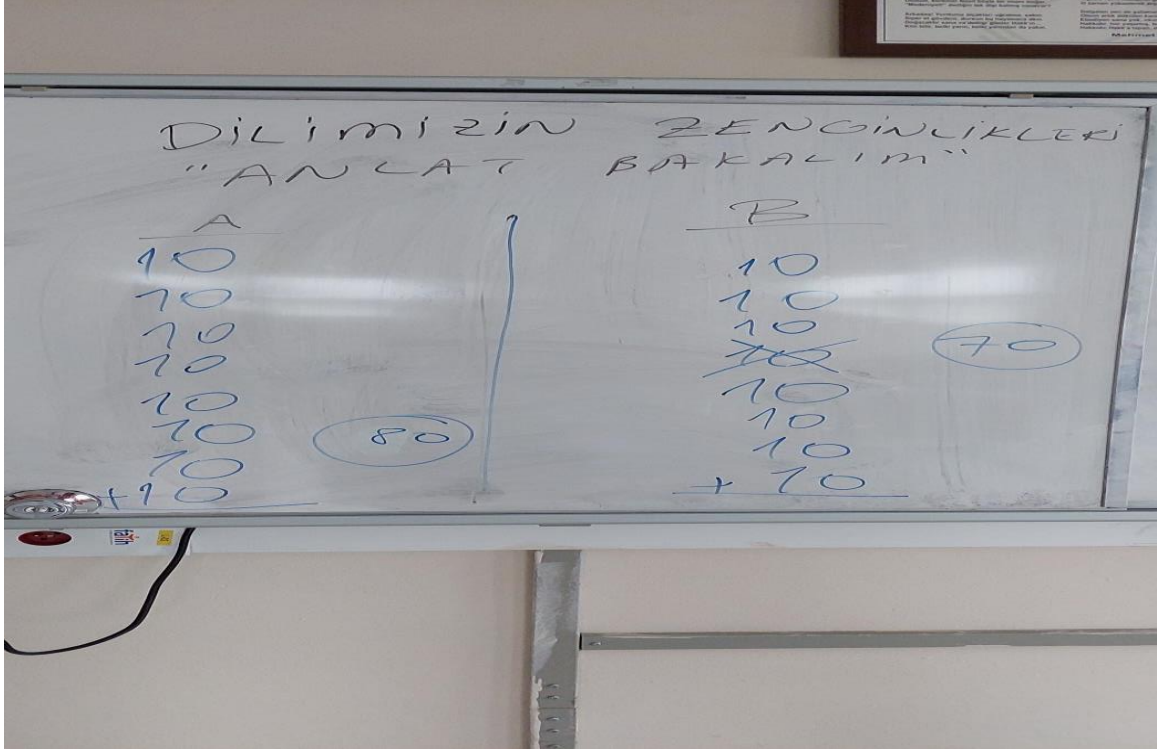 DİLİMİZİN ZENGİNLİKLERİ
"ANLAT BAKALIM"
A B
10 10
10 10
10 10
10 10
10 10
10 10
10 10
+10 + 10
80 70
fatih